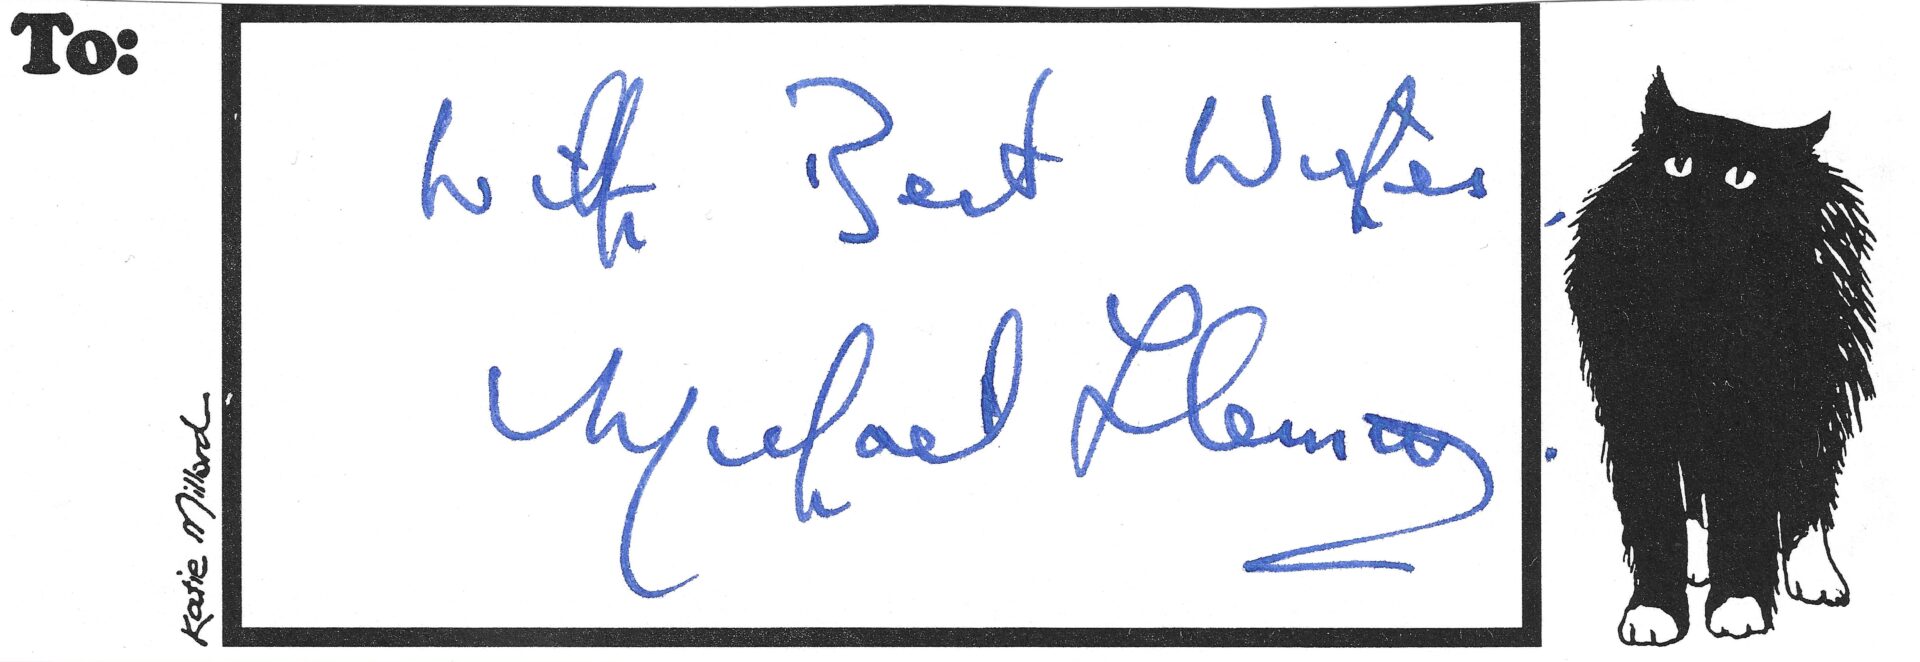 To:
With Best Wishes
Michael
Katie Millard